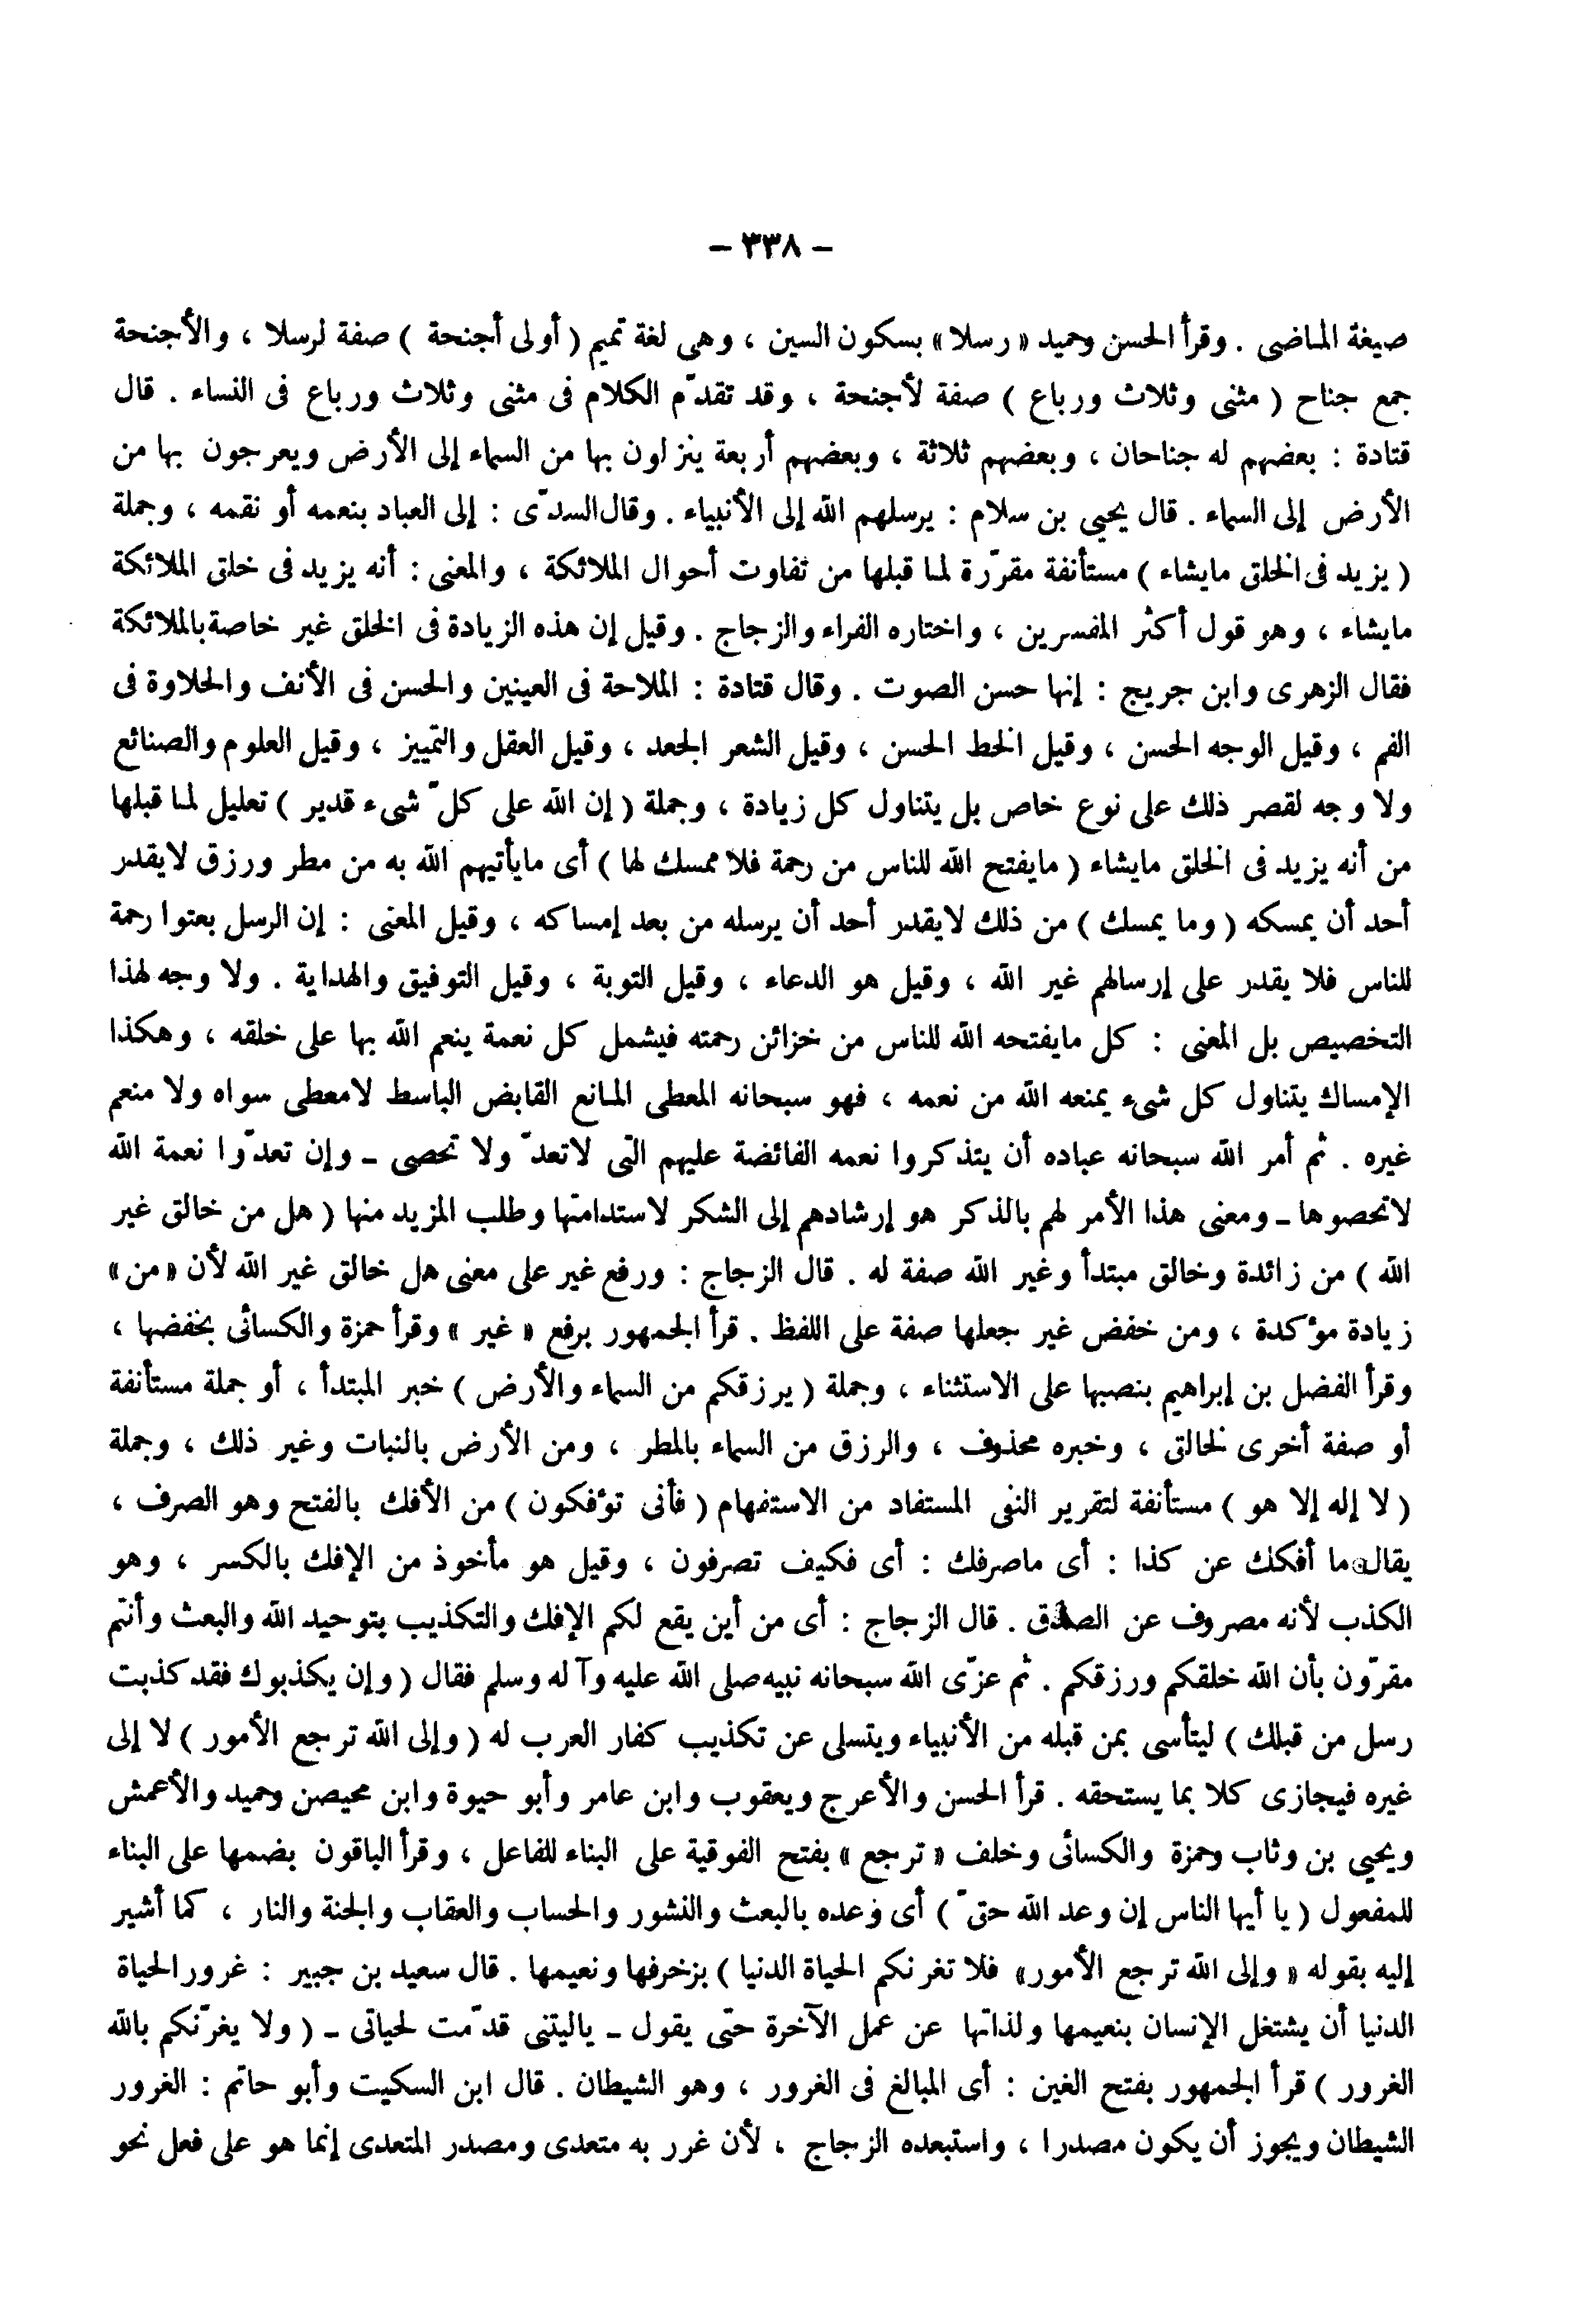 - ٣٣٨ -
صيغة الماضى . وقرأ الحسن وحميد « رسلا » بسكون السين ، وهى لغة تميم ( أولى أجنحة ) صفة لرسلا ، والأجنحة
جمع جناح ( مثنى وثلاث ورباع ) صفة لأجنحة ، وقد تقدّم الكلام فى مثنى وثلاث ورباع فى النساء . قال
قتادة : بعضهم له جناحان ، وبعضهم ثلاثة ، وبعضهم أربعة ينزلون بها من السماء إلى الأرض ويعرجون بها من
الأرض إلى السماء . قال يحيى بن سلام : يرسلهم الله إلى الأنبياء . وقال السدّى : إلى العباد بنعمه أو نقمه ، وجملة
( يزيد فى الخلق مايشاء ) مستأنفة مقرّرة لما قبلها من تفاوت أحوال الملائكة ، والمعنى : أنه يزيد فى خلق الملائكة
مايشاء ، وهو قول أكثر المفسرين ، واختاره الفراء والزجاج . وقيل إن هذه الزيادة فى الخلق غير خاصة بالملائكة
فقال الزهرى وابن جريج : إنها حسن الصوت . وقال قتادة : الملاحة فى العينين والحسن فى الأنف والحلاوة فى
الفم ، وقيل الوجه الحسن ، وقيل الخط الحسن ، وقيل الشعر الجعد ، وقيل العقل والتمييز ، وقيل العلوم والصنائع
ولا وجه لقصر ذلك على نوع خاص بل يتناول كل زيادة ، وجملة ( إن الله على كلّ شىء قدير ) تعليل لما قبلها
من أنه يزيد فى الخلق مايشاء ( مايفتح الله للناس من رحمة فلا ممسك لها ) أى مايأتيهم الله به من مطر ورزق لايقدر
أحد أن يمسكه ( وما يمسك ) من ذلك لايقدر أحد أن يرسله من بعد إمساكه ، وقيل المعنى : إن الرسل بعثوا رحمة
للناس فلا يقدر على إرسالهم غير الله ، وقيل هو الدعاء ، وقيل التوبة ، وقيل التوفيق والهداية . ولا وجه لهذا
التخصيص بل المعنى : كل مايفتحه الله للناس من خزائن رحمته فيشمل كل نعمة ينعم الله بها على خلقه ، وهكذا
الإمساك يتناول كل شىء يمنعه الله من نعمه ، فهو سبحانه المعطى المانع القابض الباسط لامعطى سواه ولا منعم
غيره . ثم أمر الله سبحانه عباده أن يتذكروا نعمه الفائضة عليهم التى لاتعدّ ولا تحصى ـ وإن تعدّوا نعمة الله
لاتحصوها ـ ومعنى هذا الأمر لهم بالذكر هو إرشادهم إلى الشكر لاستدامتها وطلب المزيد منها ( هل من خالق غير
الله ) من زائدة وخالق مبتدأ وغير الله صفة له . قال الزجاج : ورفع غير على معنى هل خالق غير الله لأن « من »
زيادة مؤكدة ، ومن خفض غير جعلها صفة على اللفظ . قرأ الجمهور برفع « غير » وقرأ حمزة والكسائى بخفضها ،
وقرأ الفضل بن إبراهيم بنصبها على الاستثناء ، وجملة ( يرزقكم من السماء والأرض ) خبر المبتدأ ، أو جملة مستأنفة
أو صفة أخرى لخالق ، وخبره محذوف ، والرزق من السماء بالمطر ، ومن الأرض بالنبات وغير ذلك ، وجملة
( لا إله إلا هو ) مستأنفة لتقرير النفى المستفاد من الاستفهام ( فأنى تؤفكون ) من الأفك بالفتح وهو الصرف ،
يقال ما أفكك عن كذا : أى ماصرفك : أى فكيف تصرفون ، وقيل هو مأخوذ من الإفك بالكسر ، وهو
الكذب لأنه مصروف عن الصدق . قال الزجاج : أى من أين يقع لكم الإفك والتكذيب بتوحيد الله والبعث وأنتم
مقرّون بأن الله خلقكم ورزقكم . ثم عزّى الله سبحانه نبيه صلى الله عليه وآله وسلم فقال ( وإن يكذبوك فقد كذبت
رسل من قبلك ) ليتأسى بمن قبله من الأنبياء ويتسلى عن تكذيب كفار العرب له ( وإلى الله ترجع الأمور ) لا إلى
غيره فيجازى كلا بما يستحقه . قرأ الحسن والأعرج ويعقوب وابن عامر وأبو حيوة وابن محيصن وحميد والأعمش
ويحيى بن وثاب وحمزة والكسائى وخلف « ترجع » بفتح الفوقية على البناء للفاعل ، وقرأ الباقون بضمها على البناء
للمفعول ( يا أيها الناس إن وعد الله حقّ ) أى وعده بالبعث والنشور والحساب والعقاب والجنة والنار ، كما أشير
إليه بقوله « وإلى الله ترجع الأمور» فلا تغرنكم الحياة الدنيا ) بزخرفها ونعيمها . قال سعيد بن جبير : غرور الحياة
الدنيا أن يشتغل الإنسان بنعيمها ولذاتها عن عمل الآخرة حتى يقول ـ ياليتنى قدّمت لحياتى ـ ( ولا يغرّنكم بالله
الغرور ) قرأ الجمهور بفتح الغين : أى المبالغ فى الغرور ، وهو الشيطان . قال ابن السكيت وأبو حاتم : الغرور
الشيطان ويجوز أن يكون مصدرا ، واستبعده الزجاج ، لأن غرر به متعدى ومصدر المتعدى إنما هو على فعل نحو